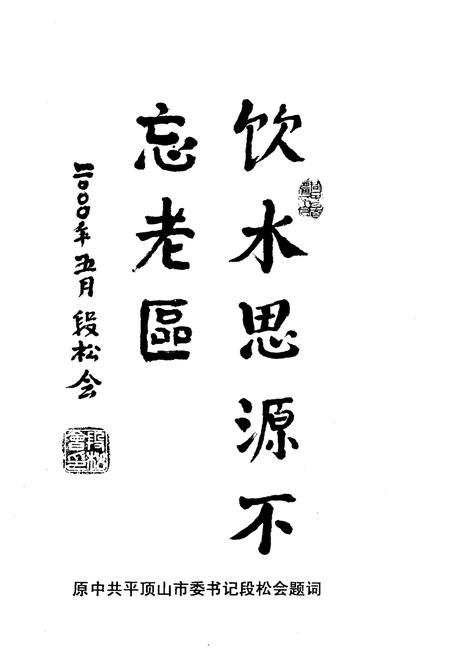 饮水思源不
忘老區
二000年五月段松会
原中共平顶山市委书记段松会题词